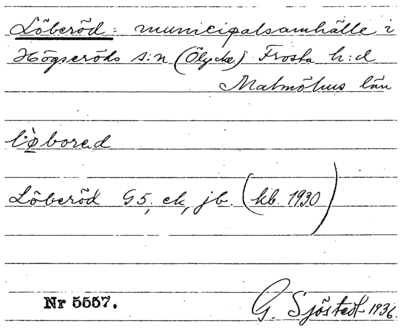 Löberöd: municipalsamhälle i
Högseröds s:n (Ölycke) Frosta h:d
Malmöhus län
Löberöd G5, ek, jb. (kb. 1930)
Nr 5557. G. Sjöstedt 1936.